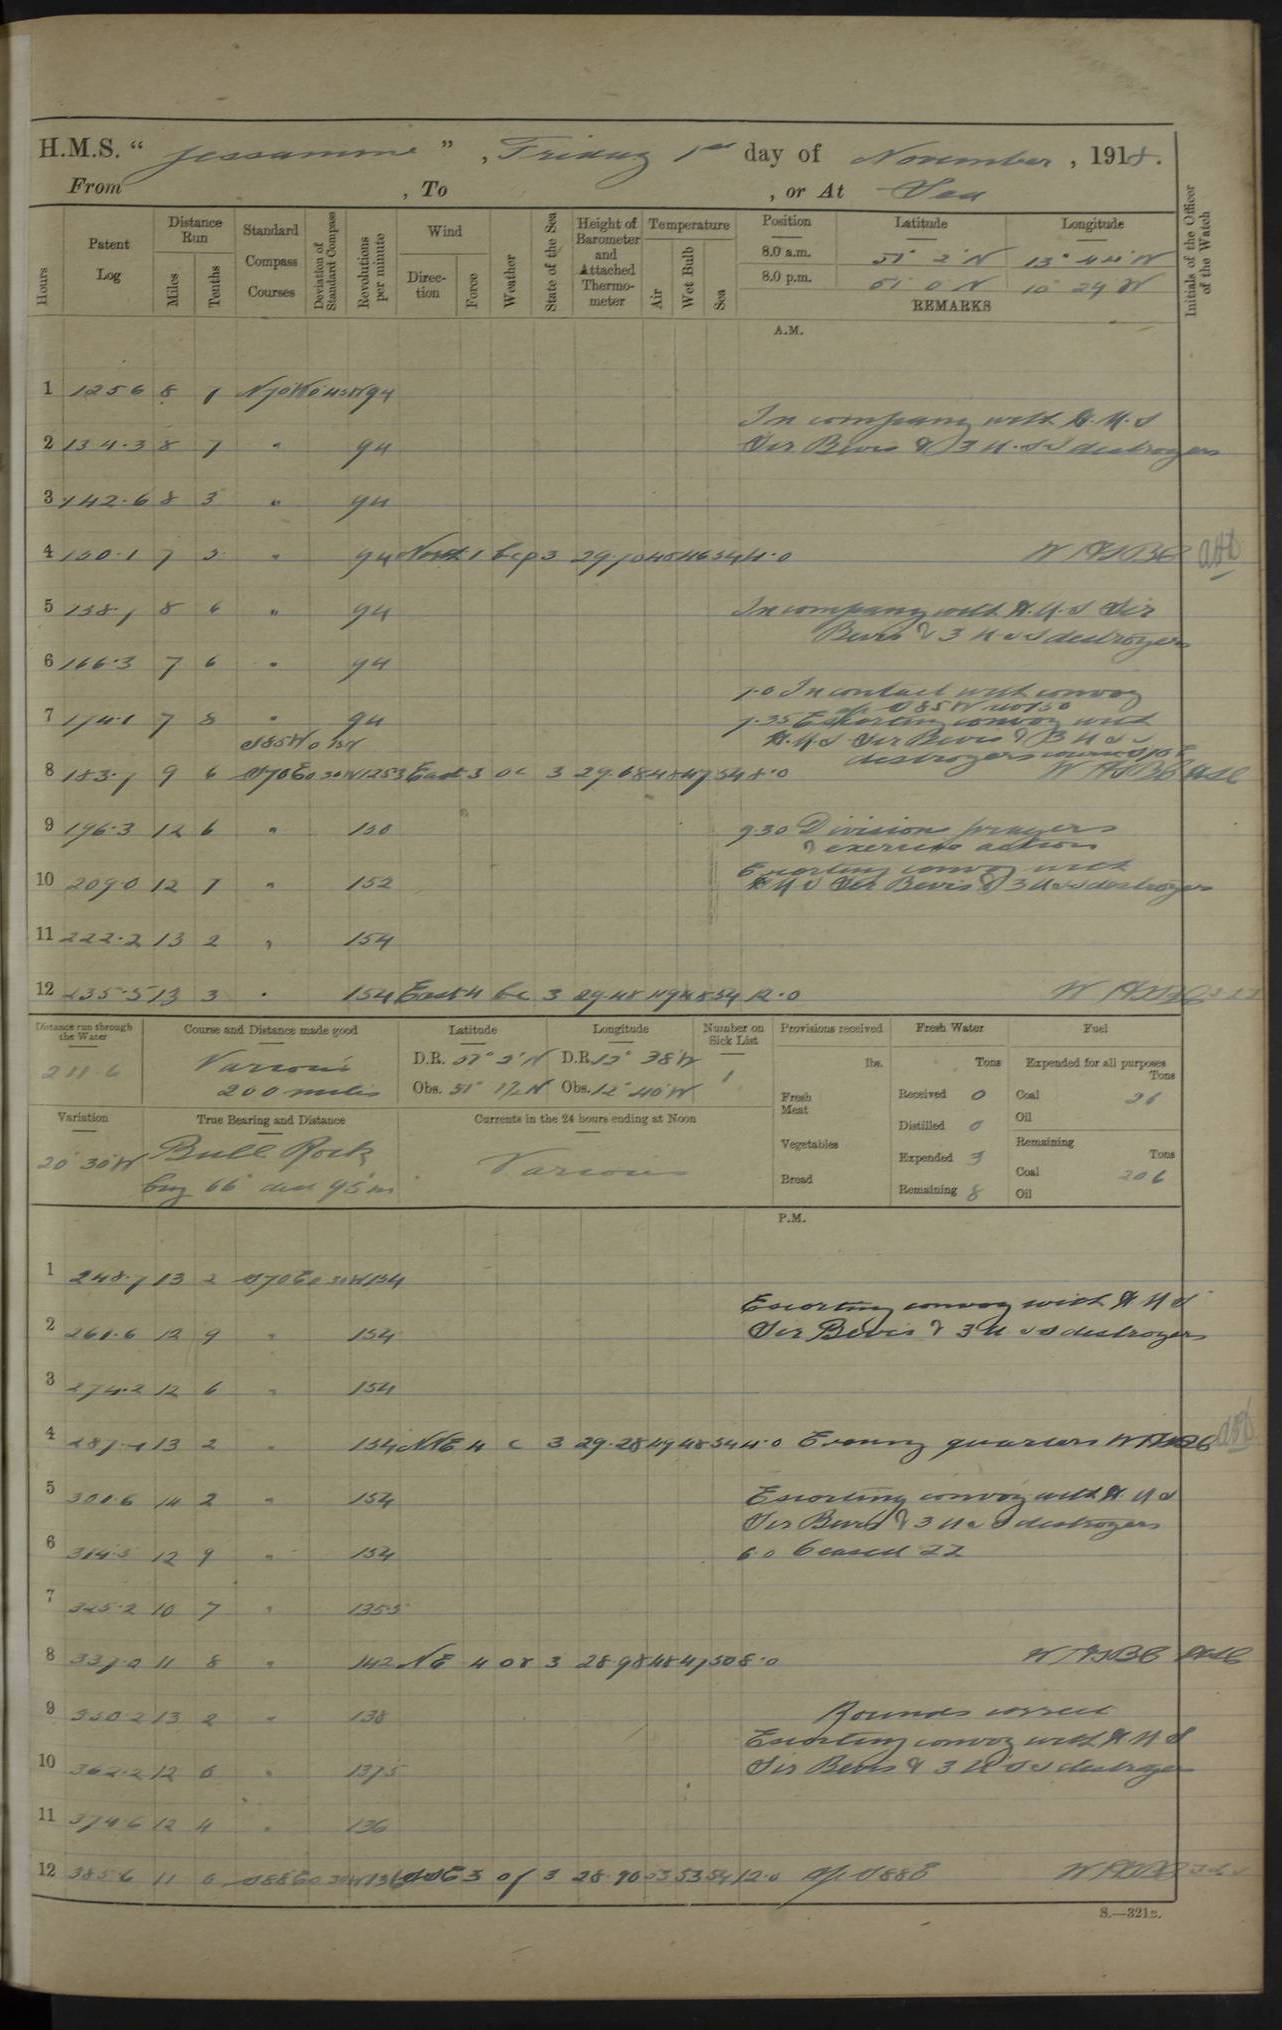 H.M.S. " Jessamine " , Friday 1st day of November , 1918.
From , To , or At Sea
Hours Patent Log Distance Run Miles Tenths Standard Compass Courses Deviation of Standard Compass Revolutions per minute Wind Direction Force Weather State of the Sea Height of Barometer and Attached Thermometer Temperature Air Wet Bulb Sea Position Latitude Longitude Initials of the Officer of the Watch
8.0 a.m. 51° 2' N 13° 44' W
8.0 p.m. 51 0 N 10 29 W
REMARKS
A.M.
1 125 6 8 N70W 94
In company with H.M.S
2 134.3 8 7 " 94 Sir Bevis & 3 U.S.S destroyers
3 142.6 8 3 " 94
4 150.1 7 5 " 94 North 1 bcp 3 29.70 45 46 54 4.0
5 158.7 8 6 " 94 In company with H.M.S Sir
Bevis & 3 U S S destroyers
6 166.3 7 6 " 94
7.0 In contact with convoy
7 174.1 7 8 " 94 7.35 Escorting convoy with
S85W H.M.S Sir Bevis & 3 U S S
destroyers course S70E
8 183.7 9 6 S70E East 3 oc 3 29.68 48 47 54 8.0
9 196.3 12 6 " 150 9.30 Division prayers
& exercise action
Escorting convoy with
10 209.0 12 7 " 152 H M S Sir Bevis & 3 U S S destroyers
11 222.2 13 2 " 154
12 235.5 13 3 " 154 East 4 bc 3 29.48 49 48 54 12.0
Distance run through the Water 211.6
Course and Distance made good Various 200 miles
Latitude D.R. 51° 2' N Obs. 51° 1½ N
Longitude D.R. 12° 38' W Obs. 12° 40' W
Number on Sick List 1
Provisions received lbs. Fresh Meat Vegetables Bread
Fresh Water Tons Received 0 Distilled 0 Expended 3 Remaining 8
Fuel Expended for all purposes Tons Coal 26 Oil Remaining Tons Coal 206 Oil
Variation 20° 30' W
True Bearing and Distance Bull Rock brg 66° dist 95 m
Currents in the 24 hours ending at Noon Various
P.M.
1 248.7 13 2 S70E 154
Escorting convoy with H M S
2 261.6 12 9 " 154 Sir Bevis & 3 U S S destroyers
3 274.2 12 6 " 154
4 287.4 13 2 " 154 NNE 4 c 3 29.28 49 48 54 4.0 Evening quarters
5 301.6 14 2 " 154 Escorting convoy with H.M S
Sir Bevis & 3 U S S destroyers
6 314.5 12 9 " 154 6.0 Ceased ZZ
7 325.2 10 7 " 135.5
8 337.0 11 8 " 142 NE 4 or 3 28.98 48 47 50 8.0
9 350.2 13 2 " 138 Rounds correct
Escorting convoy with H M S
10 362.2 12 0 " 137.5 Sir Bevis & 3 U S S destroyers
11 374.6 12 4 " 136
12 385.6 11 0 S88E 136 3 of 3 28.90 53 53 54 12.0 A/c S88E
S.—321c.